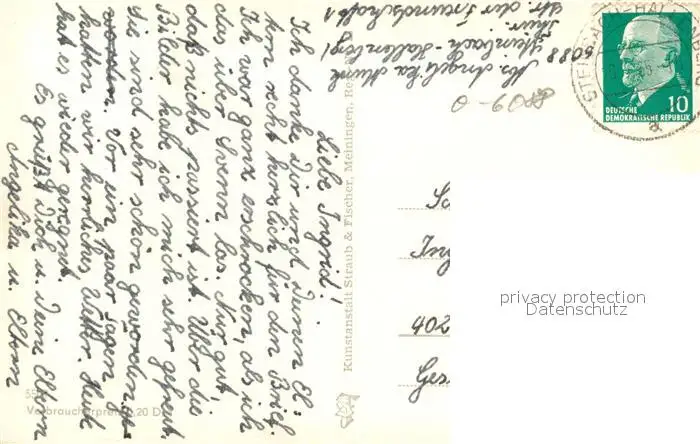 Liebe Ingrid!
Ich danke Dir und Deinen El-
tern recht herzlich für den Brief.
Ich war ganz erschrocken, als ich
das über Svenn las. Nur gut,
daß nichts passiert ist. Über die
Bilder hab ich mich sehr gefreut.
Sie sind sehr schön geworden.
Vor ein paar Tagen
hatten wir herrliches Wetter. Heut
hat es wieder geregnet.
Es grüßt Dich u. Deine Eltern
Angelika u. Eltern
Abs. Angelika Munk
6088 Steinbach-Hallenberg/
Thür.
Str. der Freundschaft 1
Kunstanstalt Straub & Fischer, Meiningen,
Verbraucherpreis 0,20 D
DEUTSCHE
DEMOKRATISCHE REPUBLIK
10
a
Ing
402
privacy protection
Datenschutz